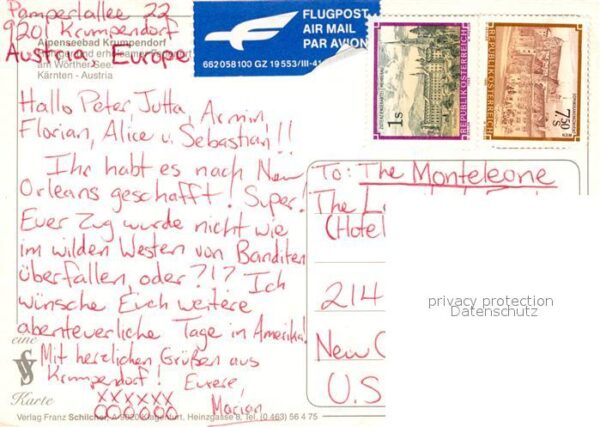 Pamperlallee 22
9201 Krumpendorf
Austria, Europe
Alpenseebad Krumpendorf
am Wörther See
Kärnten - Austria
FLUGPOST
AIR MAIL
PAR AVION
662 058 100 GZ 19 553/III-41
1s
REPUBLIK ÖSTERREICH
7.50
S
REPUBLIK ÖSTERREICH
Hallo Peter, Jutta, Armin,
Florian, Alice u. Sebastian!!
Ihr habt es nach New
Orleans geschafft! Super!
Euer Zug wurde nicht wie
im wilden Westen von Banditen
überfallen, oder?!? Ich
wünsche Euch weitere
abenteuerliche Tage in Amerika!
Mit herzlichen Grüßen aus
Krumpendorf! Eurere
XXXXXX
OOOOOO Marian
To: The Monteleone
The
(Hotel
214
New
U.S
privacy protection
Datenschutz
eine
Karte
Verlag Franz Schilcher, A-9020 Klagenfurt, Heinzgasse 8, Tel. (0 463) 56 4 75